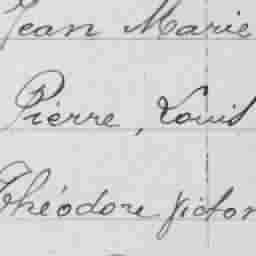 Jean Marie
Pierre, Louis
Théodore Victor